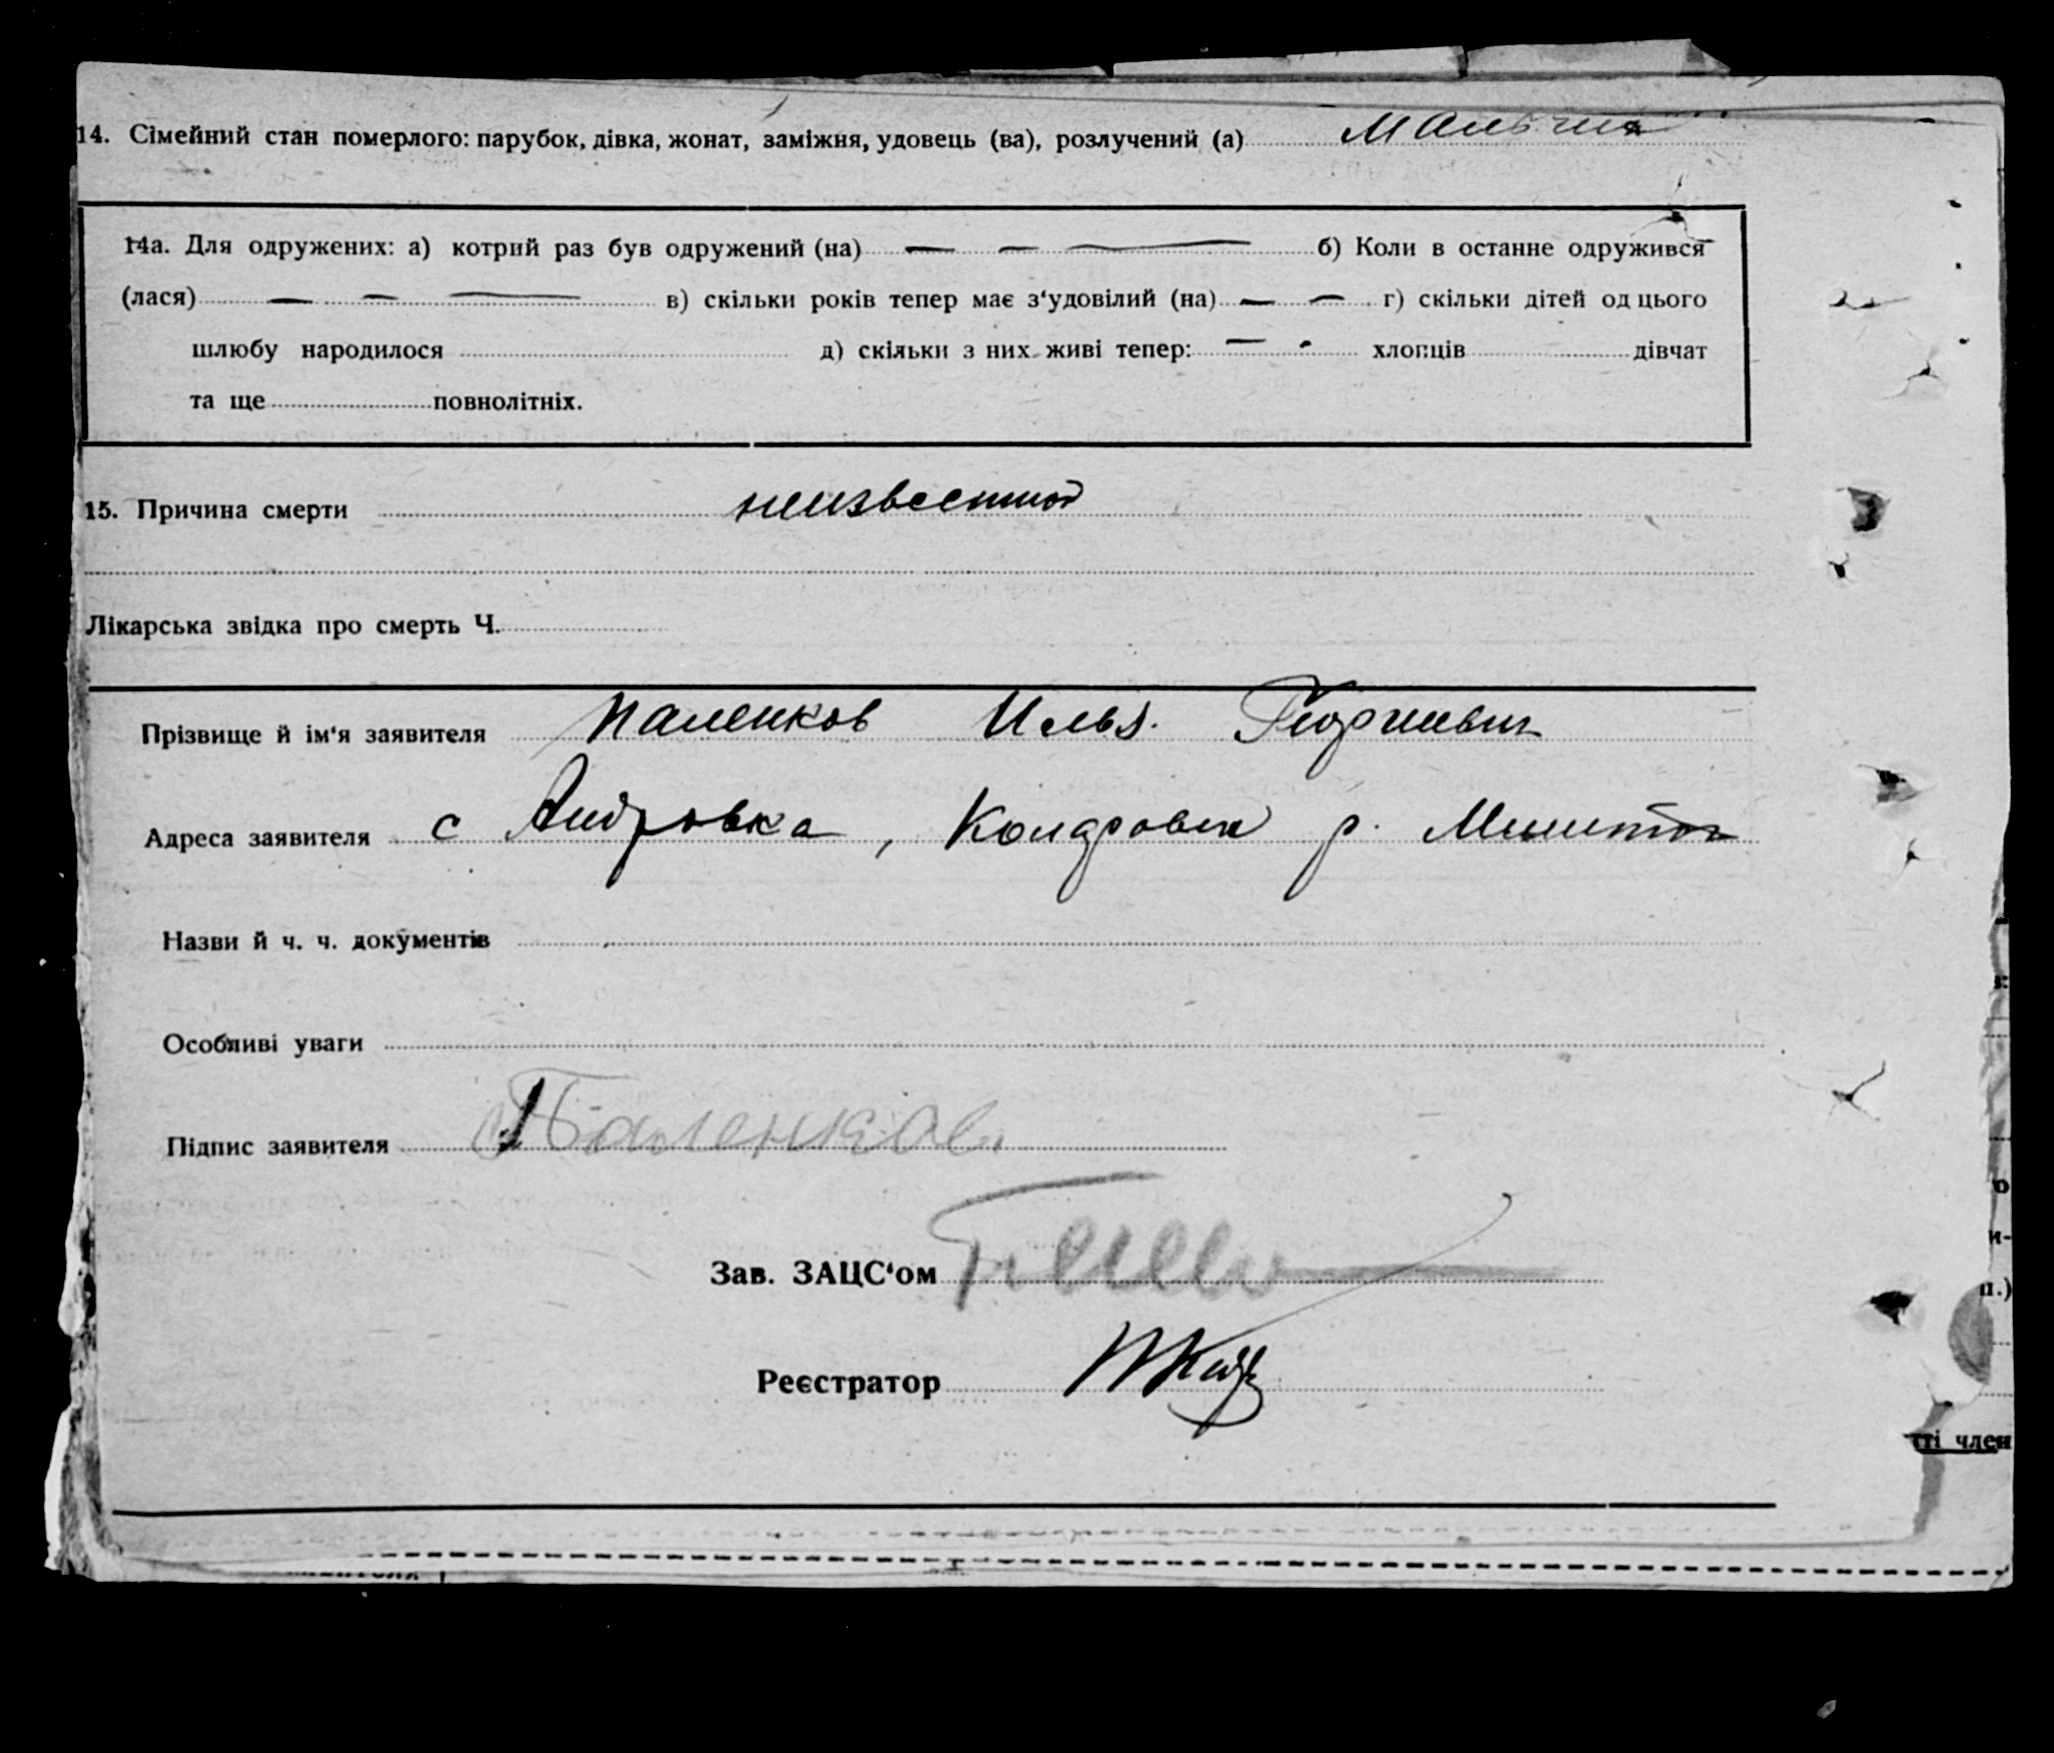 14. Сімейний стан померлого: парубок, дівка, жонат, заміжня, удовець (ва), розлучений (а) мальчик
14а. Для одружених: а) котрий раз був одружений (на) — — — б) Коли в останне одружився
(лася) — — — в) скільки років тепер має з‘удовілий (на) — — г) скільки дітей од цього
шлюбу народилося д) скільки з них живі тепер: — - хлопців дівчат
та ще повнолітніх.
15. Причина смерти неизвестно
Лікарська звідка про смерть Ч.
Прізвище й ім‘я заявителя Паленков Илья Георгиевич
Адреса заявителя с , р.
Назви й ч. ч. документів
Особливі уваги
Підпис заявителя Паленков
Зав. ЗАЦС‘ом
Реєстратор
ті член